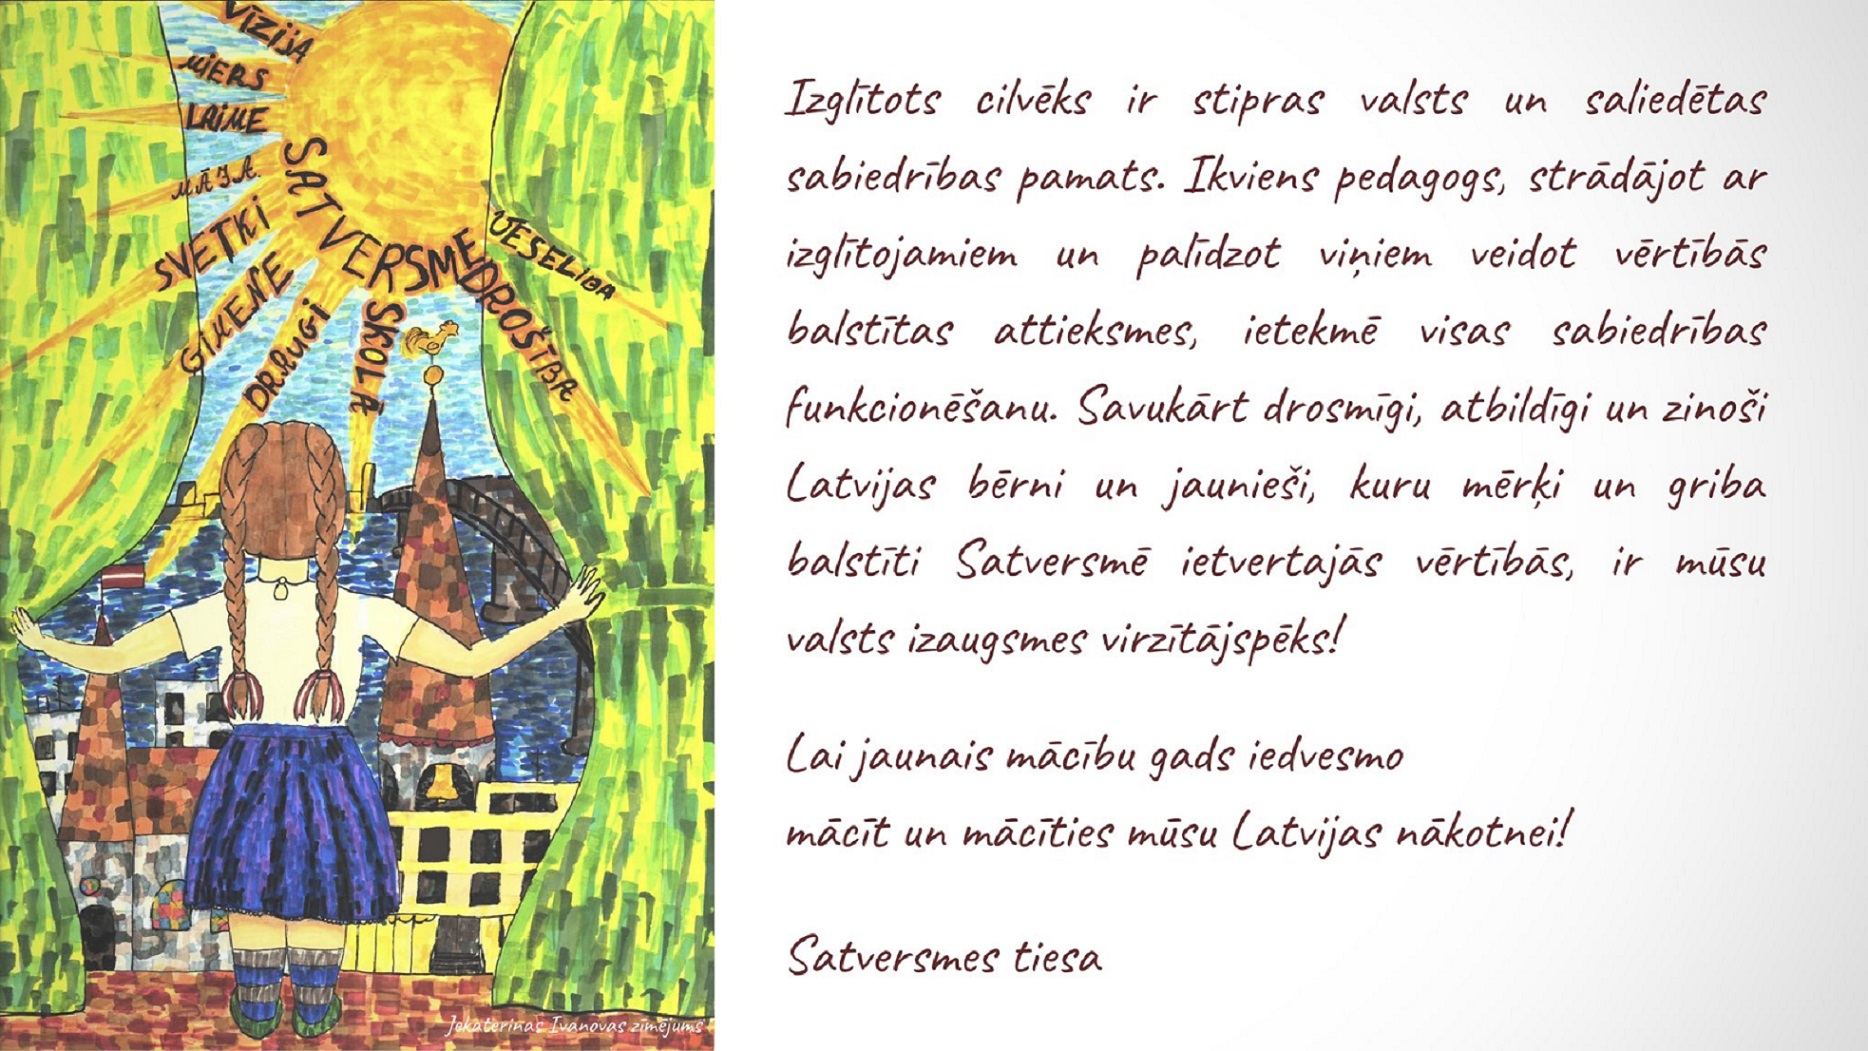 VĪZIJA
MIERS
LAIME
MĀJA.
SVĒTKI
ĢIMENE
DRAUGI
SKOLA
DROŠĪBA
VESELIBA
SATVERSME
Jekaterinas Ivanovas zīmējums
Izglītots cilvēks ir stipras valsts un saliedētas
sabiedrības pamats. Ikviens pedagogs, strādājot ar
izglītojamiem un palīdzot viņiem veidot vērtībās
balstītas attieksmes, ietekmē visas sabiedrības
funkcionēšanu. Savukārt drosmīgi, atbildīgi un zinoši
Latvijas bērni un jaunieši, kuru mērķi un griba
balstīti Satversmē ietvertajās vērtībās, ir mūsu
valsts izaugsmes virzītājspēks!
Lai jaunais mācību gads iedvesmo
mācīt un mācīties mūsu Latvijas nākotnei!
Satversmes tiesa